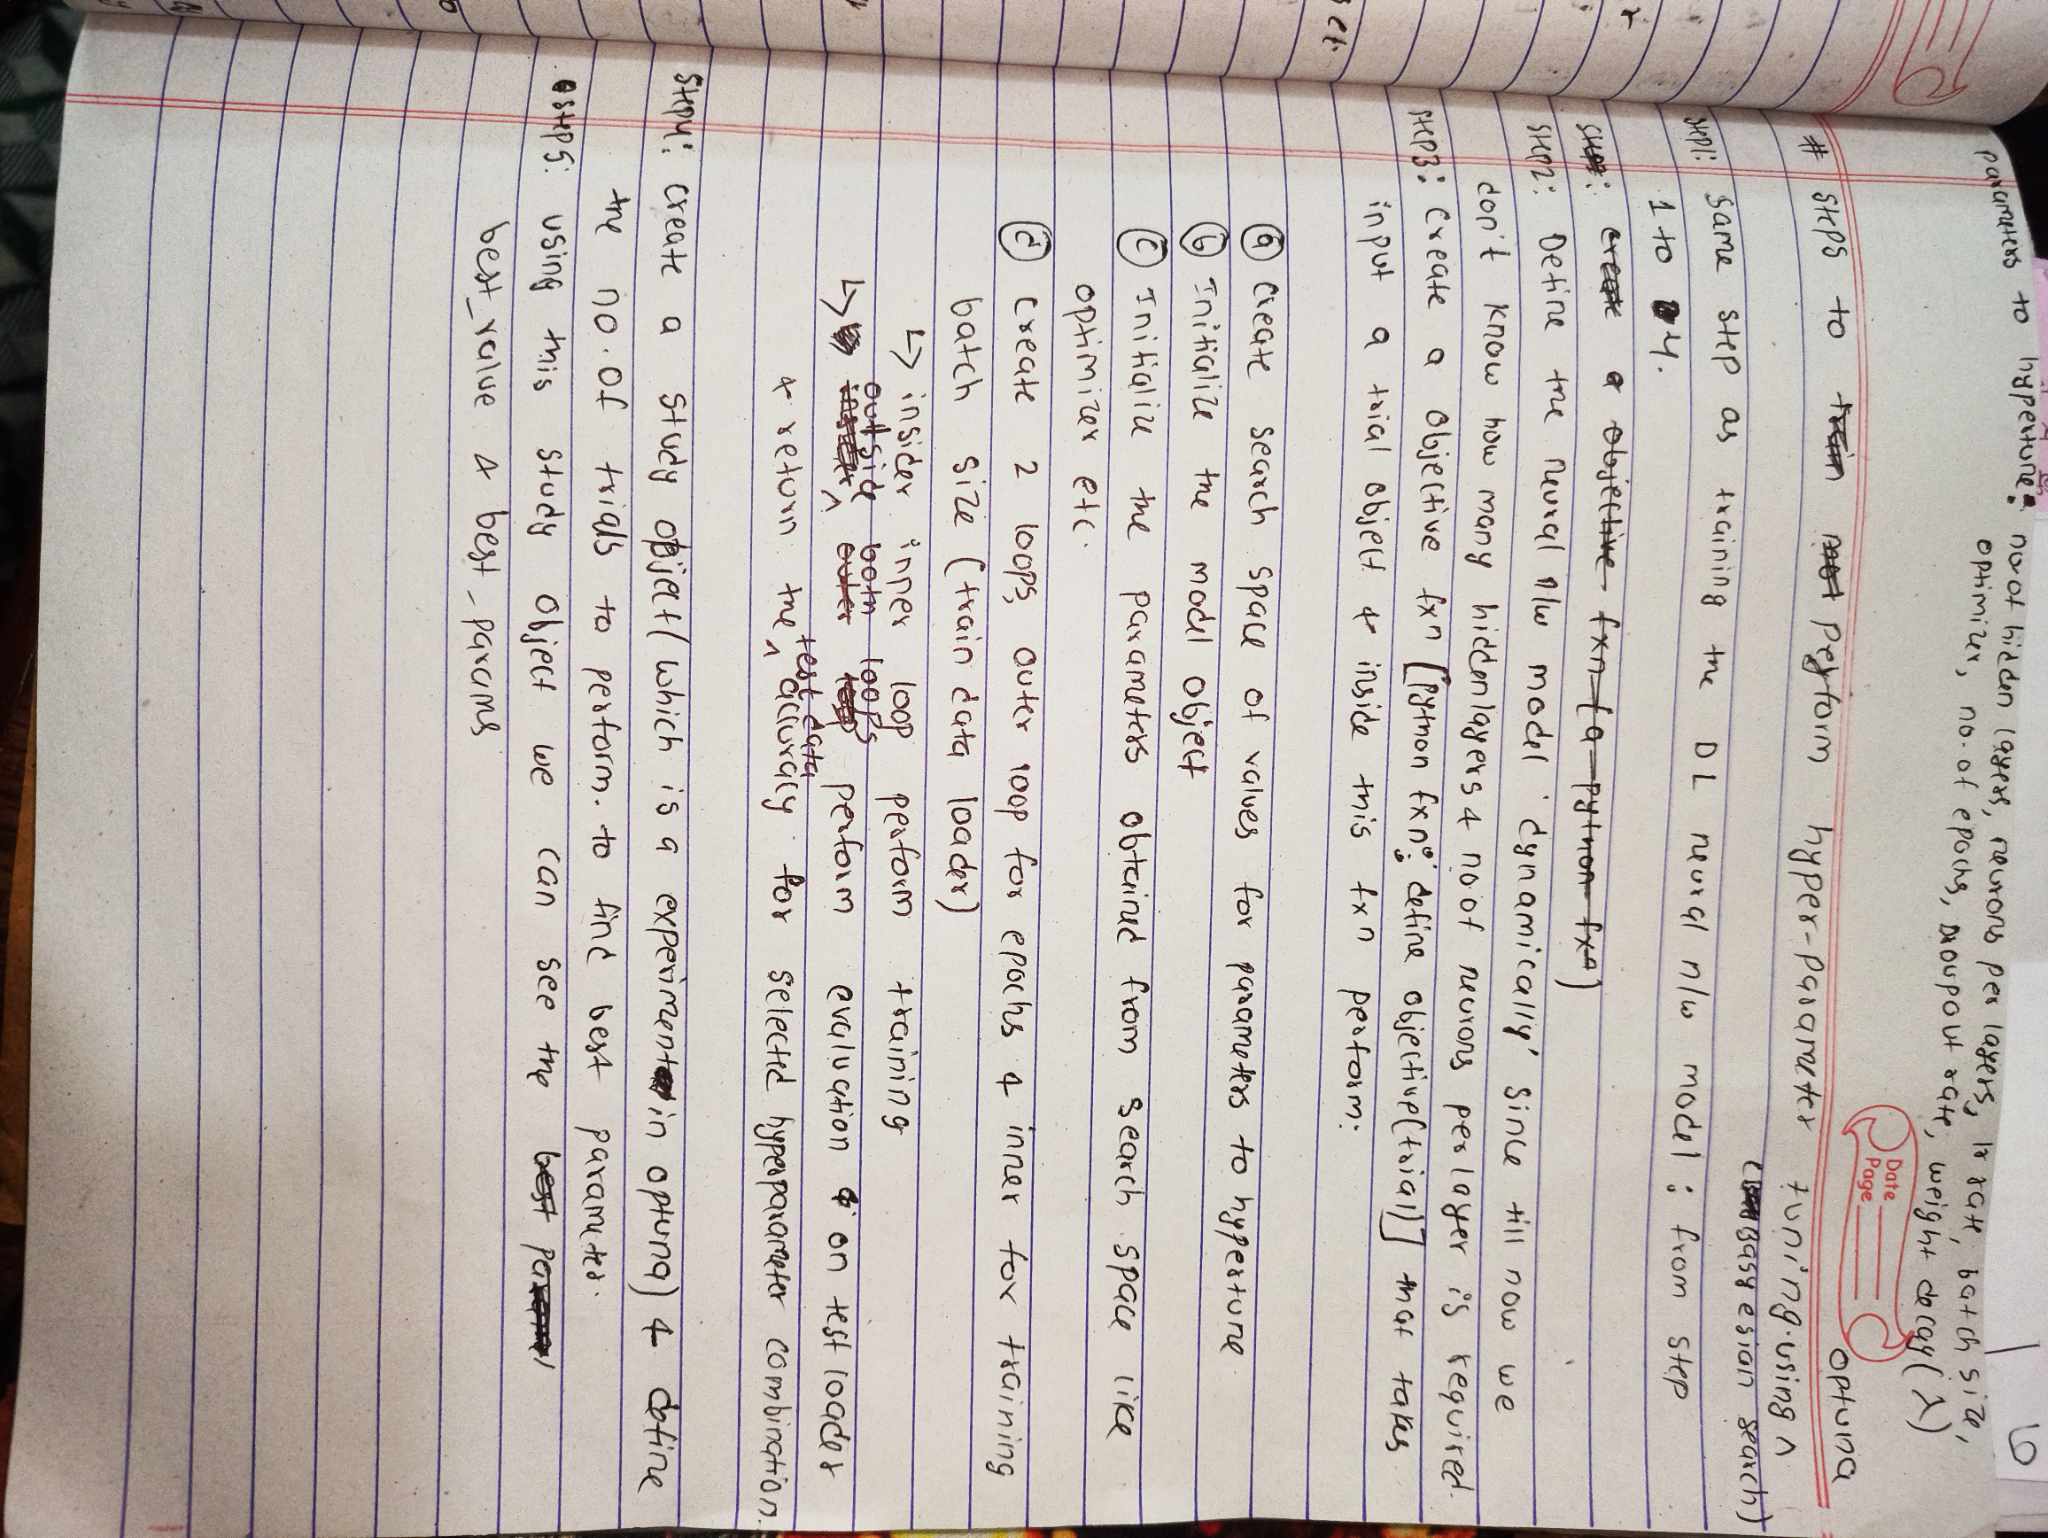 parameters to hypertune: no of hidden layers, neurons per layers, lr rate, batch size,
optimizer, no. of epochs, Droupout rate, weight decay (λ)
Date
Page
optuna
# Steps to train perform hyper-parameter tuning using ^
(Basyesian search)
Step1: Same step as training the DL neural n/w model: from step
1 to 4.
Step2: create a objective fxn (a python fxn)
Step2: Define the neural n/w model 'dynamically' since till now we
don't know how many hidden layers & no of neurons per layer is required.
Step3: Create a objective fxn [python fxn: define objective(trial)] that takes
input a trial object & inside this fxn perform:
(a) Create search space of values for parameters to hypertune
(b) Initialize the model object
(c) Initialize the parameters obtained from search space like
optimizer etc.
(d) create 2 loops, outer loop for epochs & inner for training
batch size (train data loader)
↳ insider inner loop perform training
outside both loops
↳ insider ^ outer loop perform evaluation on test loader
test data
& return the ^ accuracy for selected hyperparameter combination.
Step4: create a study object (which is a experiment in optuna) & define
the no. of trials to perform. to find best parameter.
Step5: using this study object we can see the best
best_value & best_params